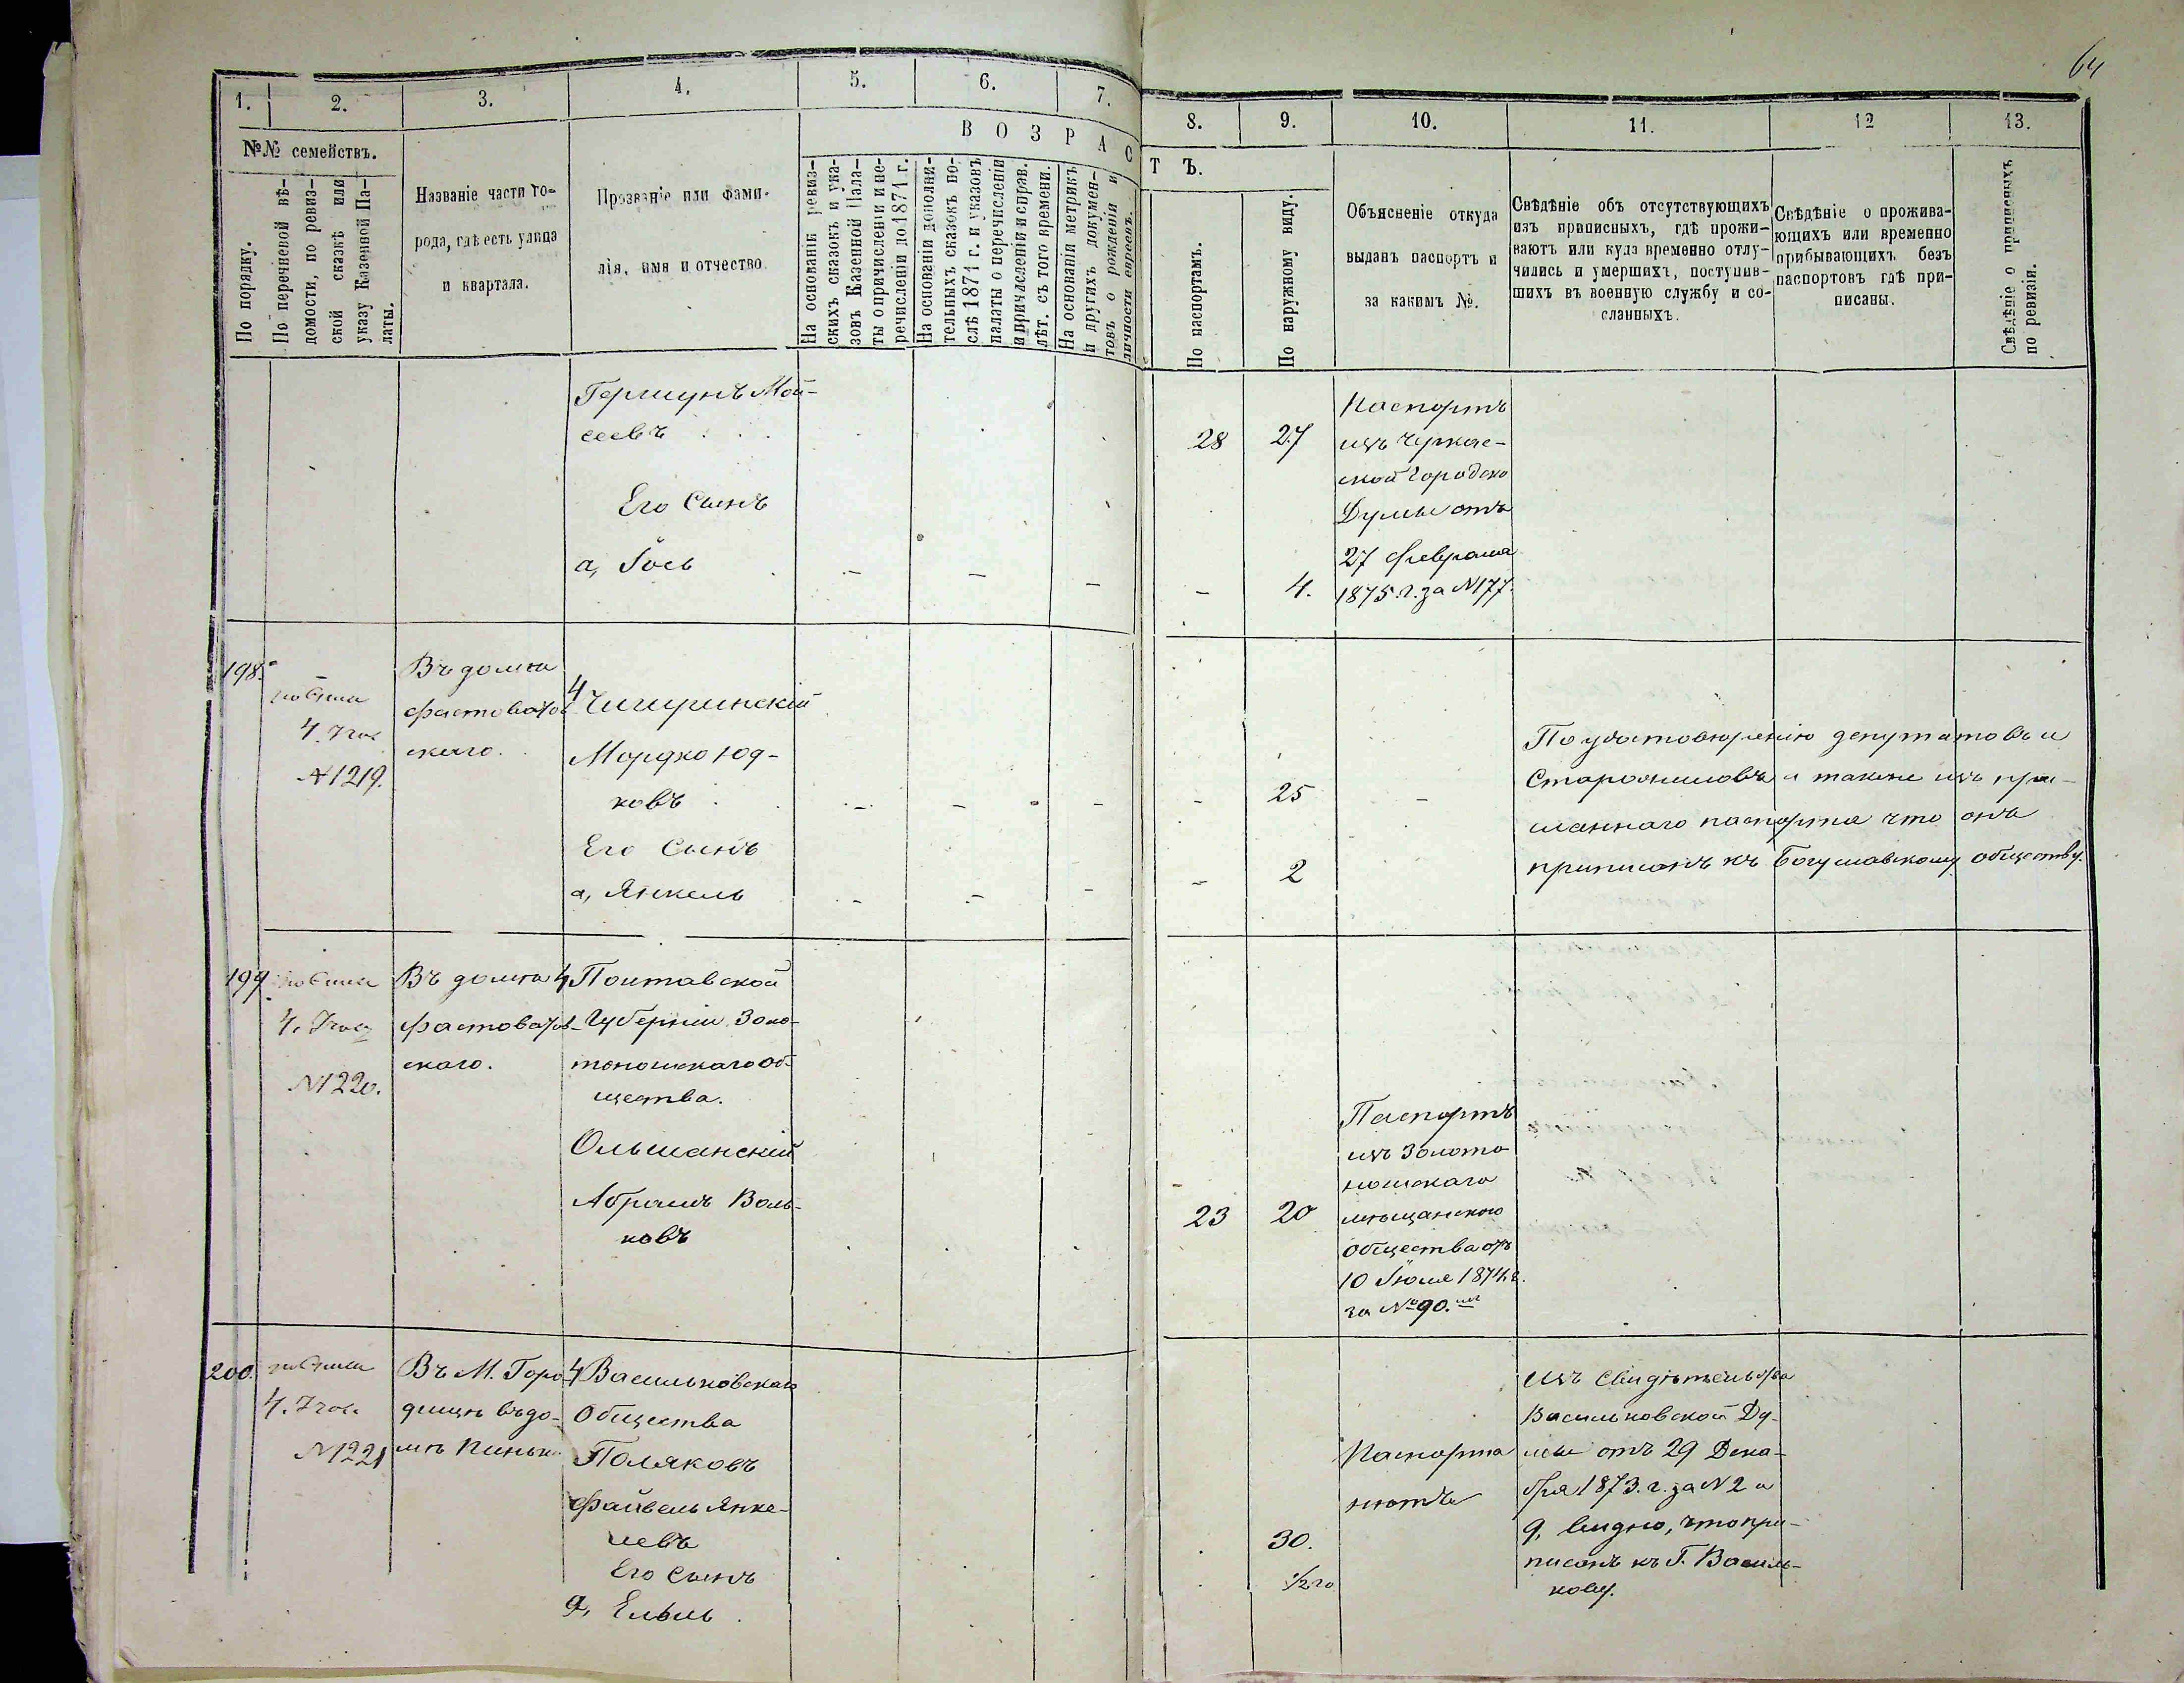 64
1. 2. 3. 4. 5. 6. 7. 8. 9. 10. 11. 12 13.
№№ семействъ.
По порядку.
По перечневой вѣ-
домости, по ревиз-
ской сказкѣ или
указу Казенной Па-
латы.
Названіе части го-
рода, гдѣ есть улица
и квартала.
Прозваніе или фами-
лія, имя и отчество
ВОЗРАСТЪ.
На основаніи ревиз-
скихъ сказокъ и ука-
зовъ Казенной Пала-
ты о причисленіи и пе-
речисленіи до 1871 г.
На основаніи дополни-
тельныхъ сказокъ по-
слѣ 1871 г. и указовъ
палаты о перечисленіи
и причисленіи и справ.
лѣт. съ того времени.
На основаніи метрикъ
и другихъ докумен-
товъ о рожденіи и
личности евреевъ.
По паспортамъ.
По наружному виду.
Объясненіе откуда
выданъ паспортъ и
за какимъ №.
Свѣдѣніе объ отсутствующихъ
изъ приписныхъ, гдѣ прожи-
ваютъ или куда временно отлу-
чились и умершихъ, поступив-
шихъ въ военную службу и со-
сланныхъ.
Свѣдѣніе о прожива-
ющихъ или временно
прибывающихъ безъ
паспортовъ гдѣ при-
писаны.
Свѣдѣніе о приписныхъ
по ревизіи.
Гершунъ Мой-
сеевъ
28 27
Его Сынъ
а, Іось
4.
Паспортъ
изъ Черкас-
ской Городско
Думы отъ
27 Февраля
1875. г. за N177.
198.
4.
N1219.
Въ домѣ
Фастовскаго.
4 Чигиринскій
Мордко Юд-
ковъ
25
Его Сынъ
а, Янкель
2
По удостовѣренію депутатовъ и
Старожиловъ а также изъ при-
сланнаго паспорта что онъ
приписанъ къ Богуславскому обществу.
199
4.
N1220.
Въ домѣ
скаго.
4 Полтавской
Губерніи Золо-
тоношскаго Об-
щества.
Ольшанскій
Абрамъ Воль-
ковъ
23 20
Паспортъ
изъ Золото
ношскаго
мѣщанскаго
Общества отъ
10 Іюля 1874. г.
за № 90.
200.
4.
N1221
Въ М. Горо-
дищѣ въ до-
мѣ
4 Васильковскаго
Общества
Поляковъ
Файвель Янке-
левъ
30.
Его Сынъ
а,
1/2 го
Паспорта
нѣтъ
Изъ Свидѣтельства
Васильковской Ду-
мы отъ 29 Дека-
бря 1873. г. за N2 а
9, видно, что при-
писанъ къ Г. Василь-
кову.